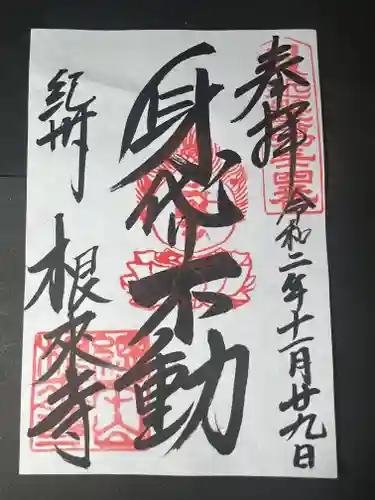 奉拝
令和二年十一月廿九日
身代不動
紀州
根来寺